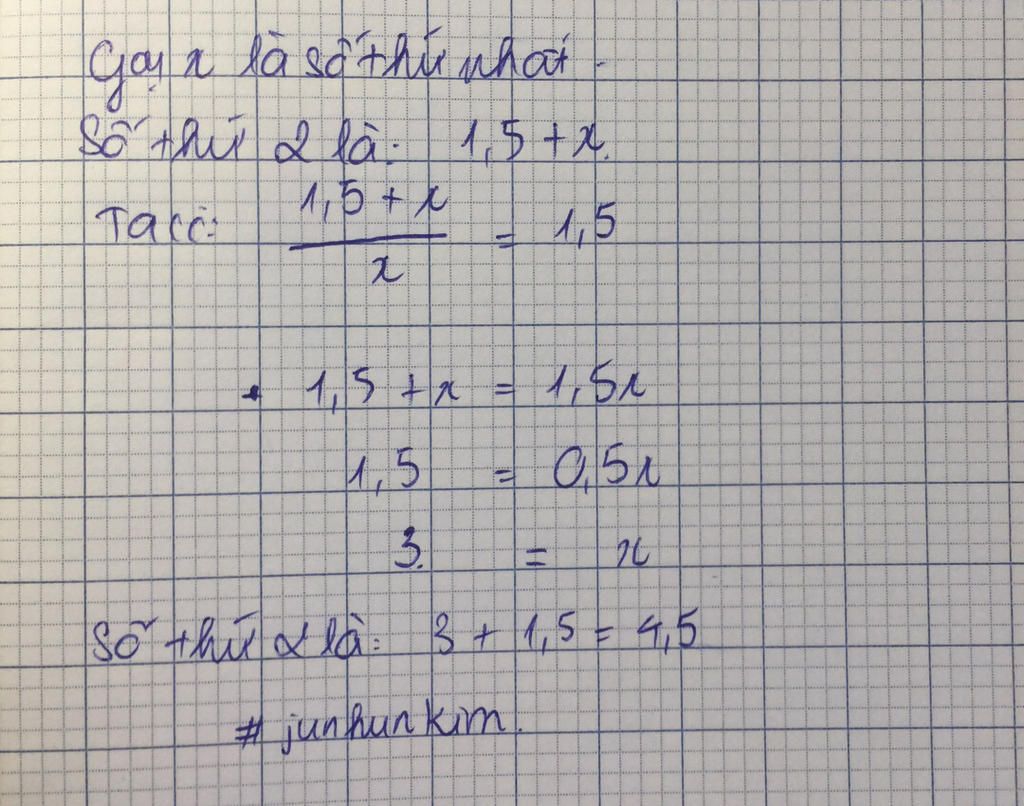 Gọi x là số thứ nhất.
Số thứ 2 là: 1,5 + x.
Ta có: (1,5 + x)/x = 1,5
1,5 + x = 1,5x
1,5 = 0,5x
3. = x
Số thứ 2 là: 3 + 1,5 = 4,5
# junhunkim.